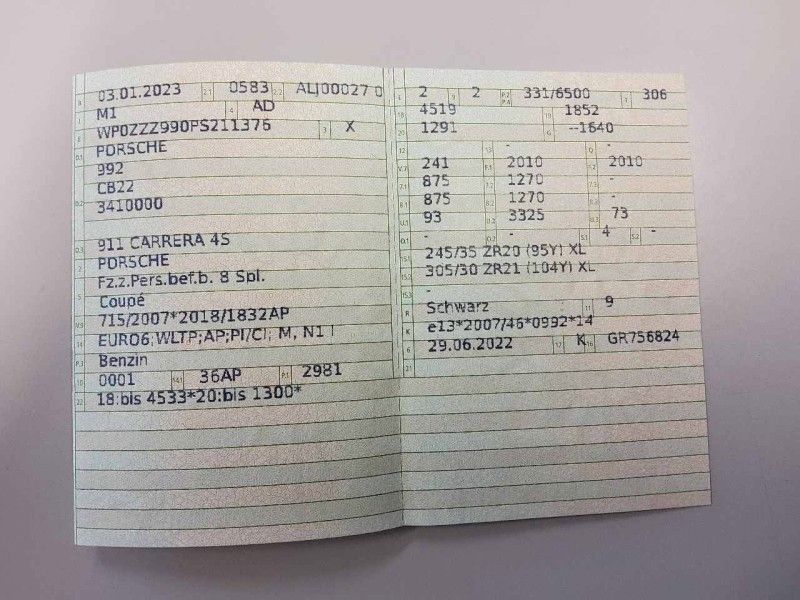 03.01.2023 0583 ALJ00027 0
M1 AD
WP0ZZZ990PS211376 X
PORSCHE
992
CB22
3410000
911 CARRERA 4S
PORSCHE
Fz.z.Pers.bef.b. 8 Spl.
Coupé
715/2007*2018/1832AP
EURO6;WLTP;AP;PI/CI; M, N1 I
Benzin
0001 36AP 2981
18:bis 4533*20:bis 1300*
2 2 331/6500 306
4519 1852
1291 --1640
- -
241 2010 2010
875 1270 -
875 1270 -
93 3325 73
- - 4 -
245/35 ZR20 (95Y) XL
305/30 ZR21 (104Y) XL
-
Schwarz 9
e13*2007/46*0992*14
29.06.2022 K GR756824